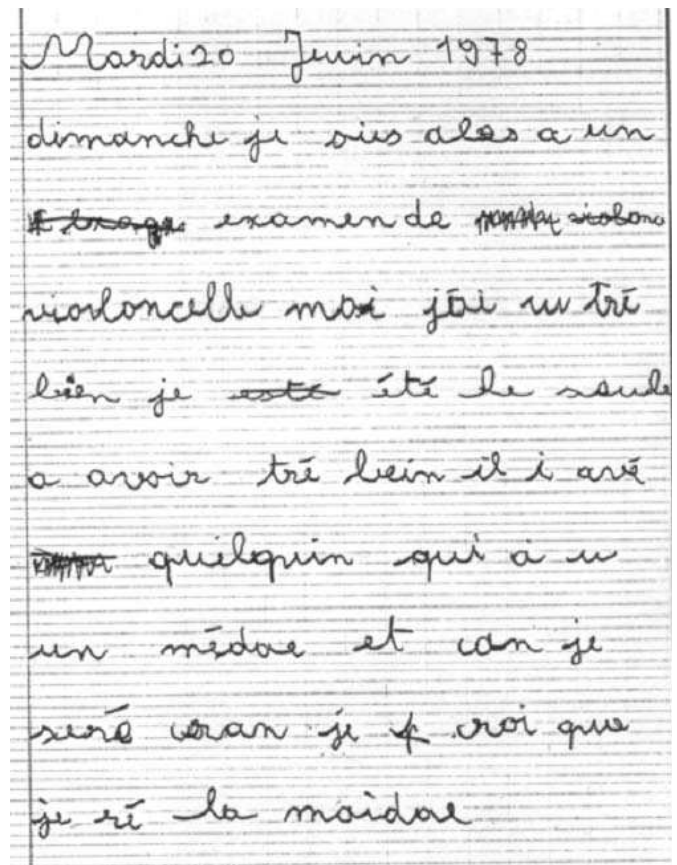 Mardi 20 Juin 1978
dimanche je suis ales a un
examen de
violoncelle moi j'ai u tré
bien je été le seule
a avoir tré bein il i avé
quelquin qui a u
un médae et can je
seré gran je croi que
je ré la maidae